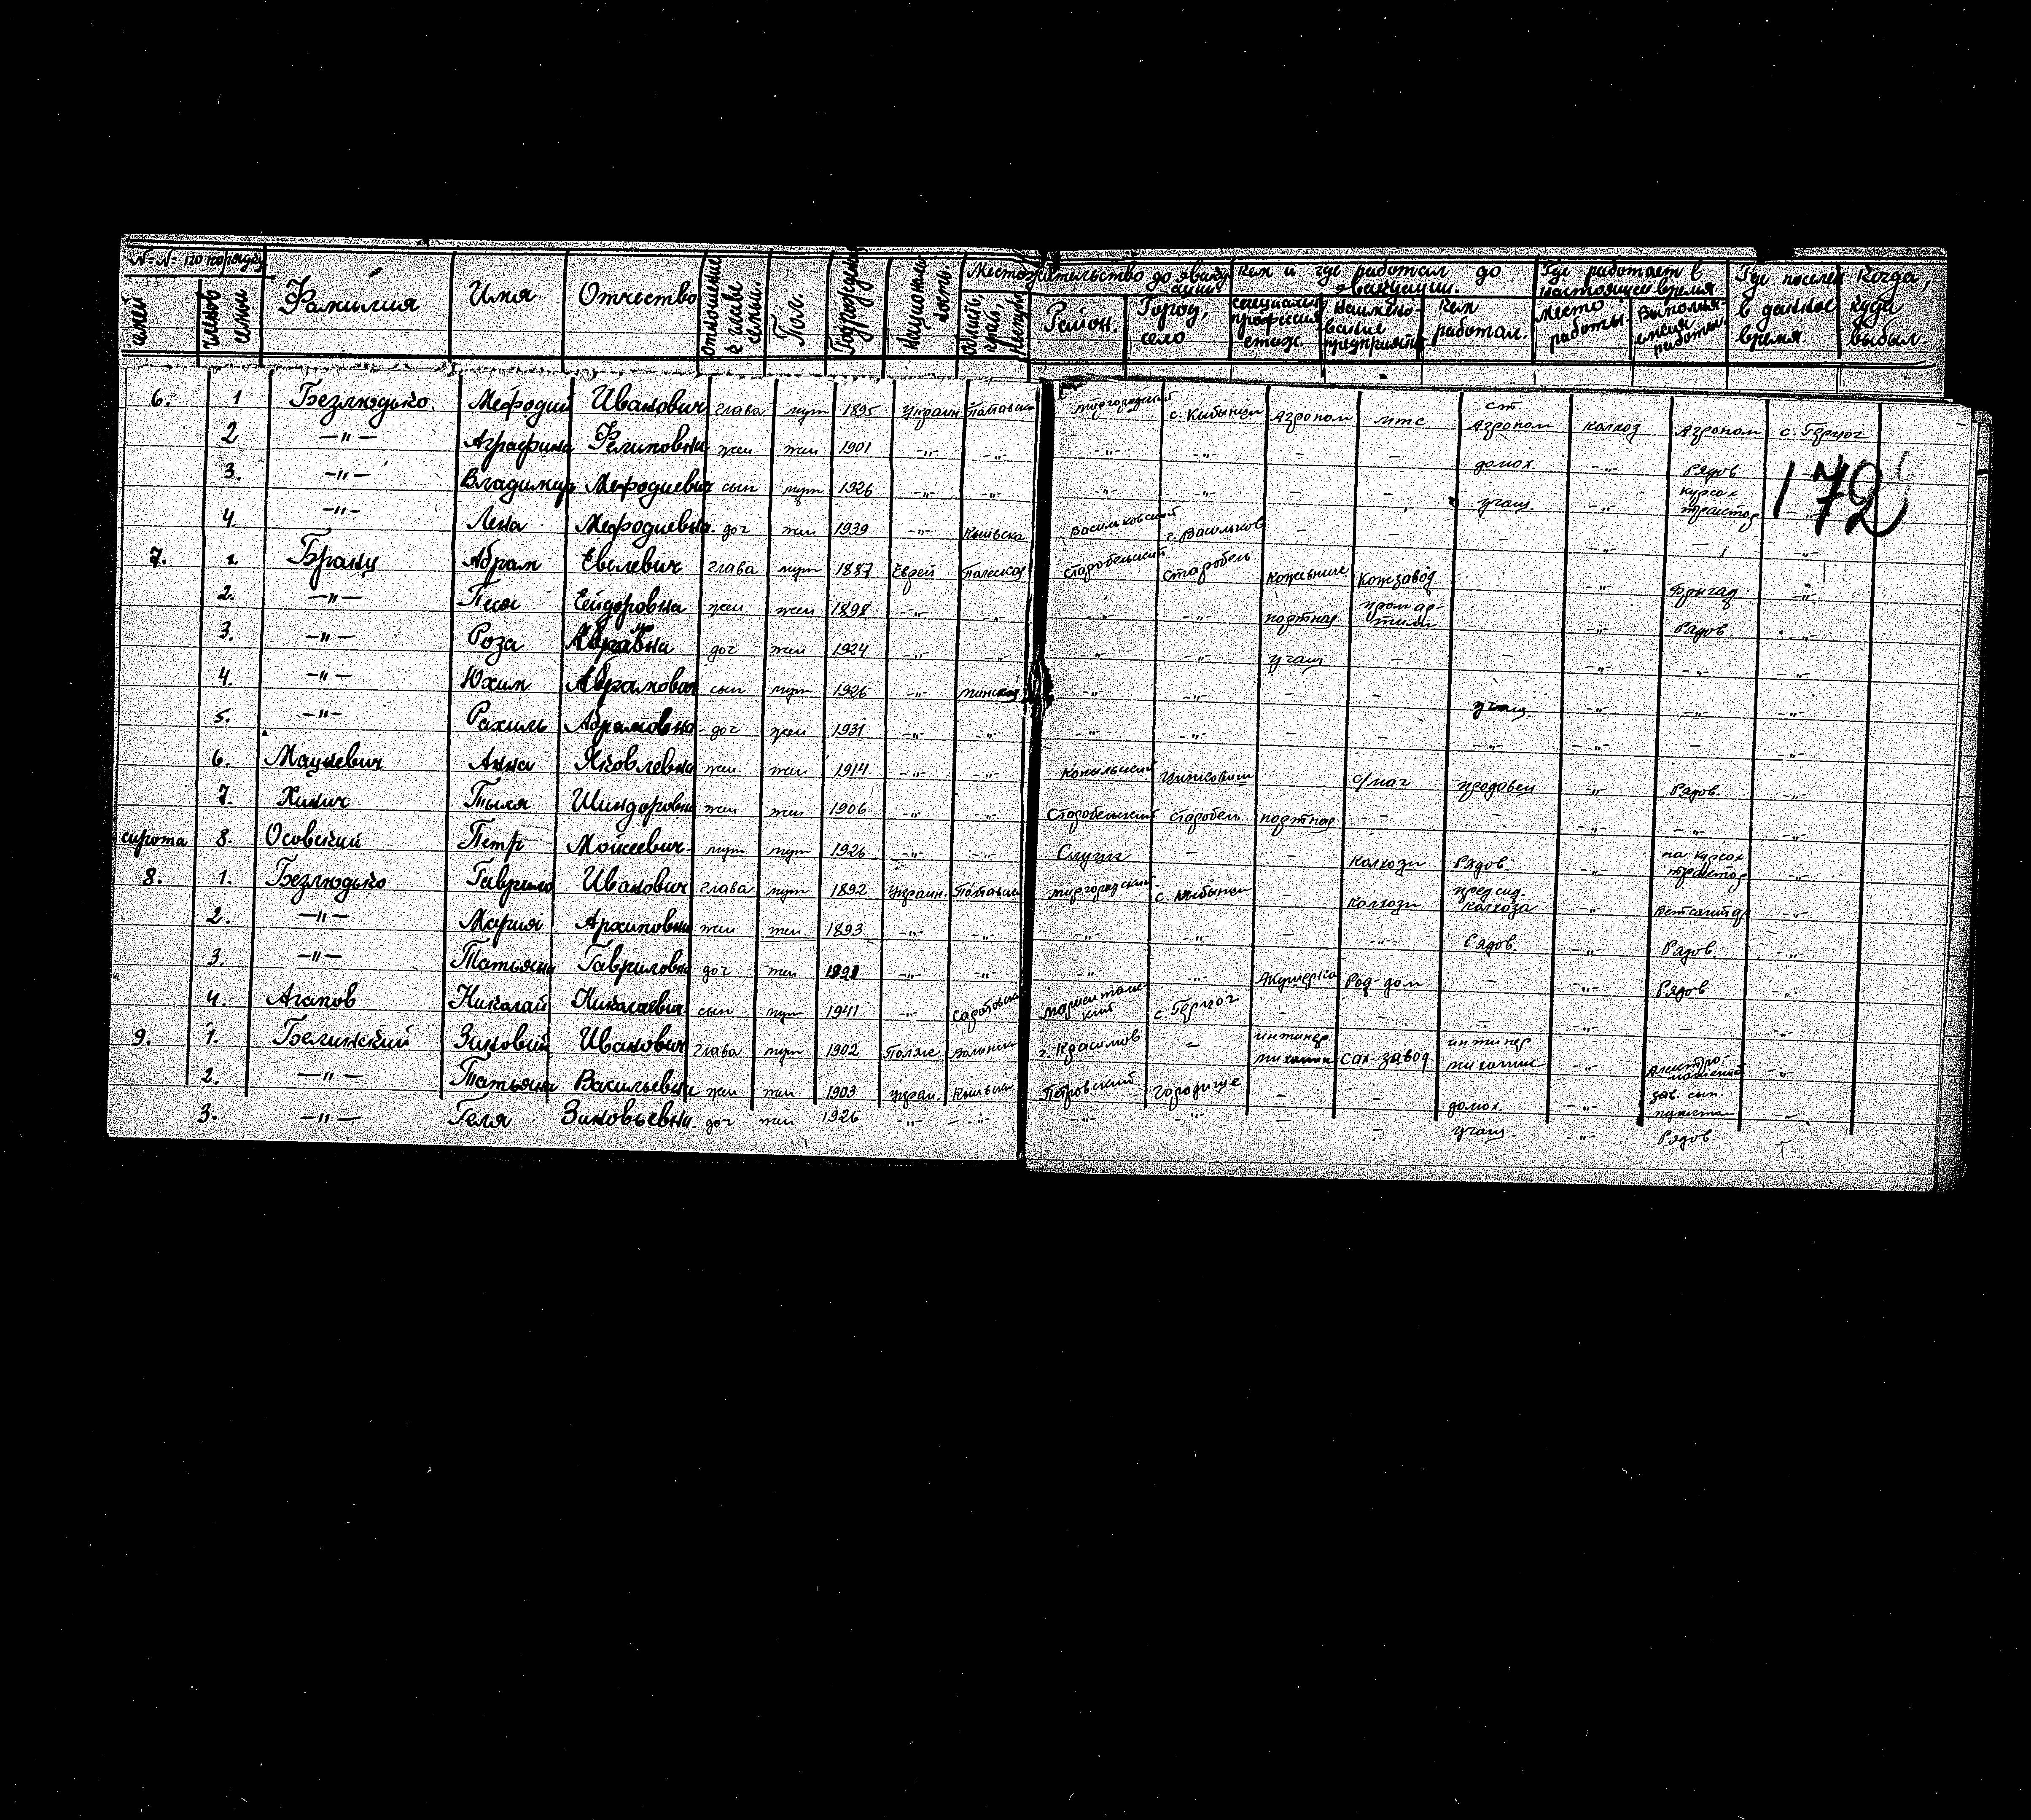 № № по порядку Фамилия Имя Отчество отношение к главе семьи Пол. Год рождения Национальность Местожительство до эвакуации Кем и где работал до эвакуации. Где работает в настоящее время Где поселен в данное время. Когда, куда выбыл
семей членов семьи область, край, Район. Город, село специальн профессия стаж. Наимено-вание предприятия Кем работал. место работы. Выполня-емая работа.
6. 1 Безлюдько. Мефодий Иванович глава муж 1895 Украин Полтавска миргородский с. Кибынци Агроном мтс ст. Агроном колхоз Агроном с. Герцог
2 —"— Аграфина Филиповна жен жен 1901 -"- -"- -"- -"- - - домох. -"- Рядов
3. —"— Владимир Мефодиевич сын муж 1926 -"- -"- -"- -"- - - учащ. -"- курсах трактор -"-
172
4. —"— Лена Мефодиевна. доч жен 1939 -"- Кыивска Васильковский г. Васильков - - -"- - -"-
7. 1. Бранц Абрам Евелевич глава муж 1887 Еврей Полеская Старобельский Старобель кожевние Кожзавод -"- Бригад -"-
2. —"— Песя Ейдоровна жен жен 1898 -"- -"- -"- -"- портная пром ар-тили - -"- Рядов. -"-
3. —"— Роза Аврамвна доч жен 1924 -"- -"- -"- -"- учащ - - -"- -"- -"-
4. —"— Юхим Аврамович сын муж 1926 -"- минская -"- -"- - - учащ. -"- -"- -"-
5. —"— Рахиль Абрамовна доч жен 1931 -"- -"- -"- -"- - - -"- -"- - -"-
6. Мацкевич Анна Яковлевна жен. жен 1914 -"- -"- Копыльский с/маг продовец -"- Рядов. -"-
7. Хинич Тыля Шиндоровна жен жен 1906 -"- -"- Старобельский Старобель портная - - -"- -"- -"-
сирота 8. Осовский Петр Моисеевич муж муж 1926 -"- -"- Слуцк - - колхози Рядов. -"- на курсах трактор -"-
8. 1. Безлюдько Гаврило Иванович глава муж 1892 Украин. Полтавска миргородский с. Кибынци - колхози предсид. колхоза -"- ветсанитар -"-
2. —"— Мария Архиповна жен жен 1893 -"- -"- -"- -"- - -"- Рядов. -"- Рядов -"-
3. —"— Татьяна Гавриловна доч жен 1921 -"- -"- -"- -"- Акушерка Род-дом - -"- Рядов -"-
4. Агапов Николай Николаевич сын муж 1941 -"- Саратовска мариентальский с. Герцог - - - -"- - -"-
9. 1. Белинский Зиновий Иванович глава муж 1902 Поляк Волынска г. Красилов - инжинер миханик Сах-завод инжинер миханик -"- -"-
2. —"— Татьяна Васильевна жен жен 1903 украи. Кыивска Петровский городище - - домох. -"- зав. сып. пунктам -"-
3. —"— Геля Зиновьевна. доч жен 1926 -"- -"- -"- -"- - - учащ. -"- Рядов.